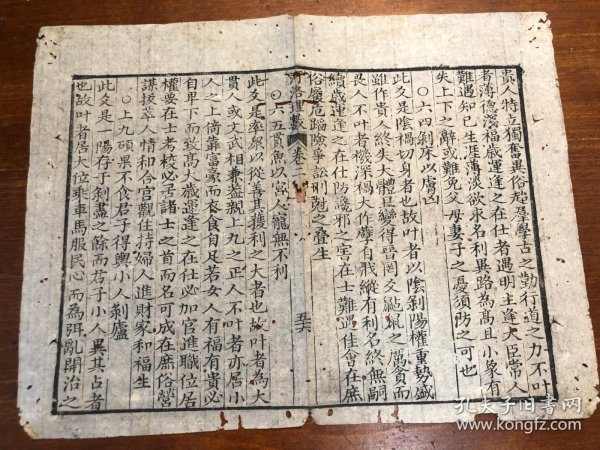 貴人特立獨奮異俗超羣學古之勤行道之力不叶
者薄德淺福歲運逢之在仕者遇明主逢大臣常人
難遇知已生涯薄淡欲求名利異路為高且小象有
失上下之辭或難免父母妻子之憂須防之可也
○六四剝床以膚凶
此爻是陰禍切身者也故叶者以陰剝陽權重勢盛
雖作貴人終失大體且變得晉罔交鼫鼠之厲貪而
畏人不叶者機深禍大作孽自戕縱有利名終無嗣
續歲運逢之在仕防讒邪之害在士難遇佳會在庶
俗罹危蹈險爭訟刑剋之疊生
○六五貫魚以宮人寵無不利
河洛理數 卷二 五六
此爻是率衆以從善其獲利之大者也故叶者為大
貴人或文武相兼並親上九之正人不叶者亦居小
人之上倚靠富豪而衣食自足若女人有福有貴必
自卑下而致高大歲運逢之在仕必加官進職位居
權要在士考校必為諸士之首而名可成在庶俗營
謀拔萃人情和合宮觀住持婦人進財家和福生
○上九碩果不食君子得輿小人剝廬
此爻是一陽存于剝盡之餘而君子小人異其占者
也故叶者居大位乘車馬服民心而為弭亂開治之
孔夫子旧书网
book.kongfz.com